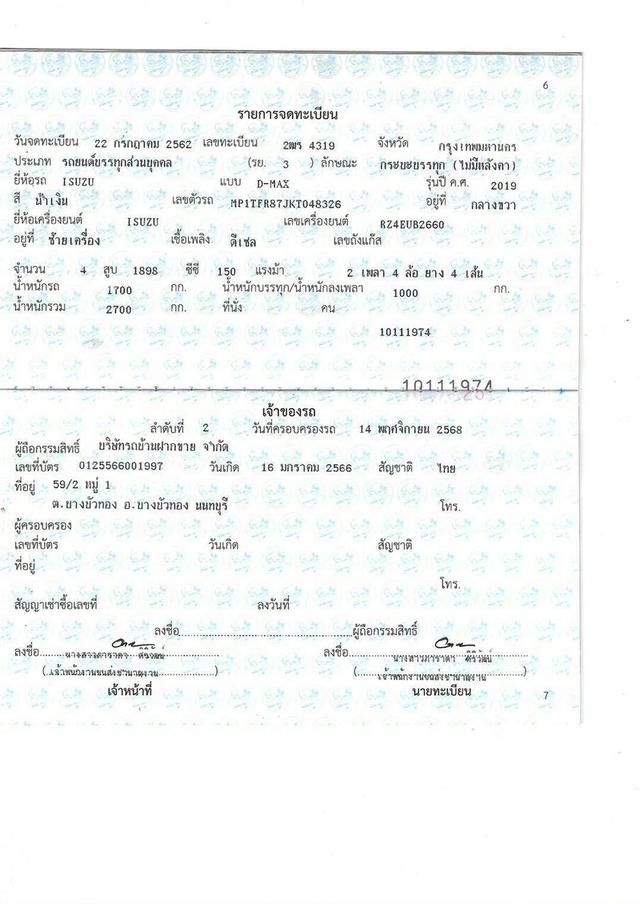 6
รายการจดทะเบียน
วันจดทะเบียน 22 กรกฎาคม 2562 เลขทะเบียน 2ฒร 4319 จังหวัด กรุงเทพมหานคร
ประเภท รถยนต์บรรทุกส่วนบุคคล (รย. 3 ) ลักษณะ กระบะบรรทุก (ไม่มีหลังคา)
ยี่ห้อรถ ISUZU แบบ D-MAX รุ่นปี ค.ศ. 2019
สี น้ำเงิน เลขตัวรถ MP1TFR87JKT048326 อยู่ที่ กลางขวา
ยี่ห้อเครื่องยนต์ ISUZU เลขเครื่องยนต์ RZ4EUB2660
อยู่ที่ ซ้ายเครื่อง เชื้อเพลิง ดีเซล เลขถังแก๊ส
จำนวน 4 สูบ 1898 ซีซี 150 แรงม้า 2 เพลา 4 ล้อ ยาง 4 เส้น
น้ำหนักรถ 1700 กก. น้ำหนักบรรทุก/น้ำหนักลงเพลา 1000 กก.
น้ำหนักรวม 2700 กก. ที่นั่ง คน
10111974
10111974
เจ้าของรถ
ลำดับที่ 2 วันที่ครอบครองรถ 14 พฤศจิกายน 2568
ผู้ถือกรรมสิทธิ์ บริษัทรถบ้านฝากขาย จำกัด
เลขที่บัตร 0125566001997 วันเกิด 16 มกราคม 2566 สัญชาติ ไทย
ที่อยู่ 59/2 หมู่ 1
ต.บางบัวทอง อ.บางบัวทอง นนทบุรี โทร.
ผู้ครอบครอง
เลขที่บัตร วันเกิด สัญชาติ
ที่อยู่
โทร.
สัญญาเช่าซื้อเลขที่ ลงวันที่
ลงชื่อ ผู้ถือกรรมสิทธิ์
ลงชื่อ ลงชื่อ
(เจ้าพนักงานขนส่งชำนาญงาน) (เจ้าพนักงานขนส่งชำนาญงาน)
เจ้าหน้าที่ นายทะเบียน
7